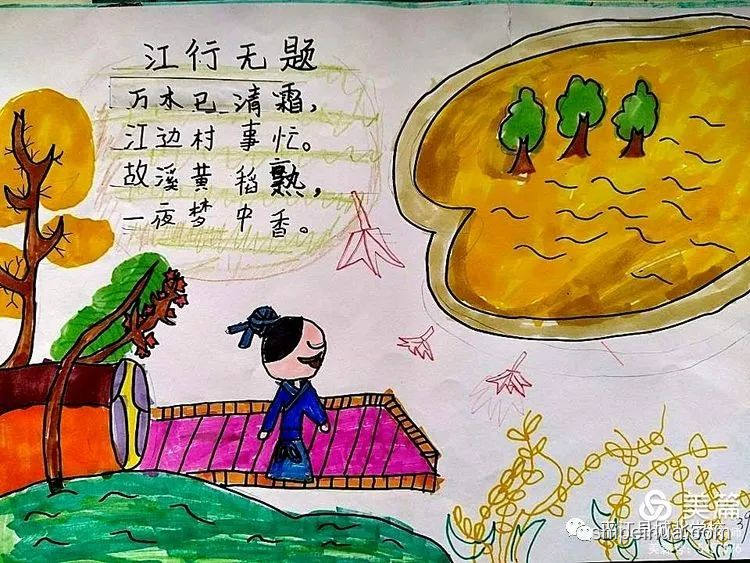 江行无题
万木已清霜，
江边村事忙。
故溪黄稻熟，
一夜梦中香。
美篇
39